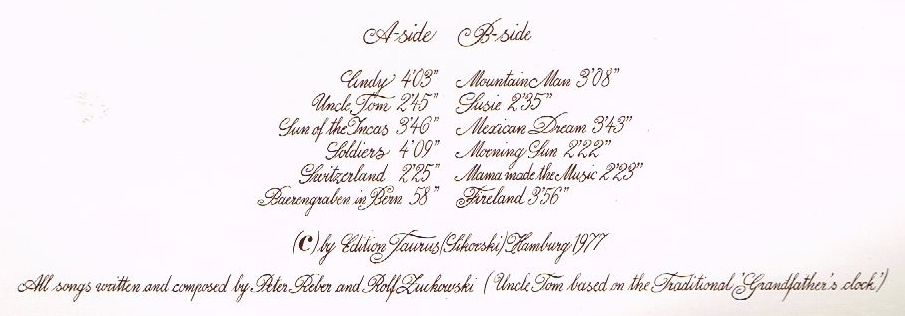 A-side B-side
Cindy 4'03" Mountain Man 3'08"
Uncle Tom 2'45" Susie 2'35"
Sun of the Incas 3'46" Mexican Dream 3'43"
Soldiers 4'09" Morning Sun 2'22"
Switzerland 2'25" Mama made the Music 2'23"
Baerengraben in Bern 58" Fireland 3'56"
(c) by Edition Taurus (Sikorski) Hamburg 1977
All songs written and composed by Peter Reber and Rolf Zuckowski (Uncle Tom based on the Traditional 'Grandfather's clock')